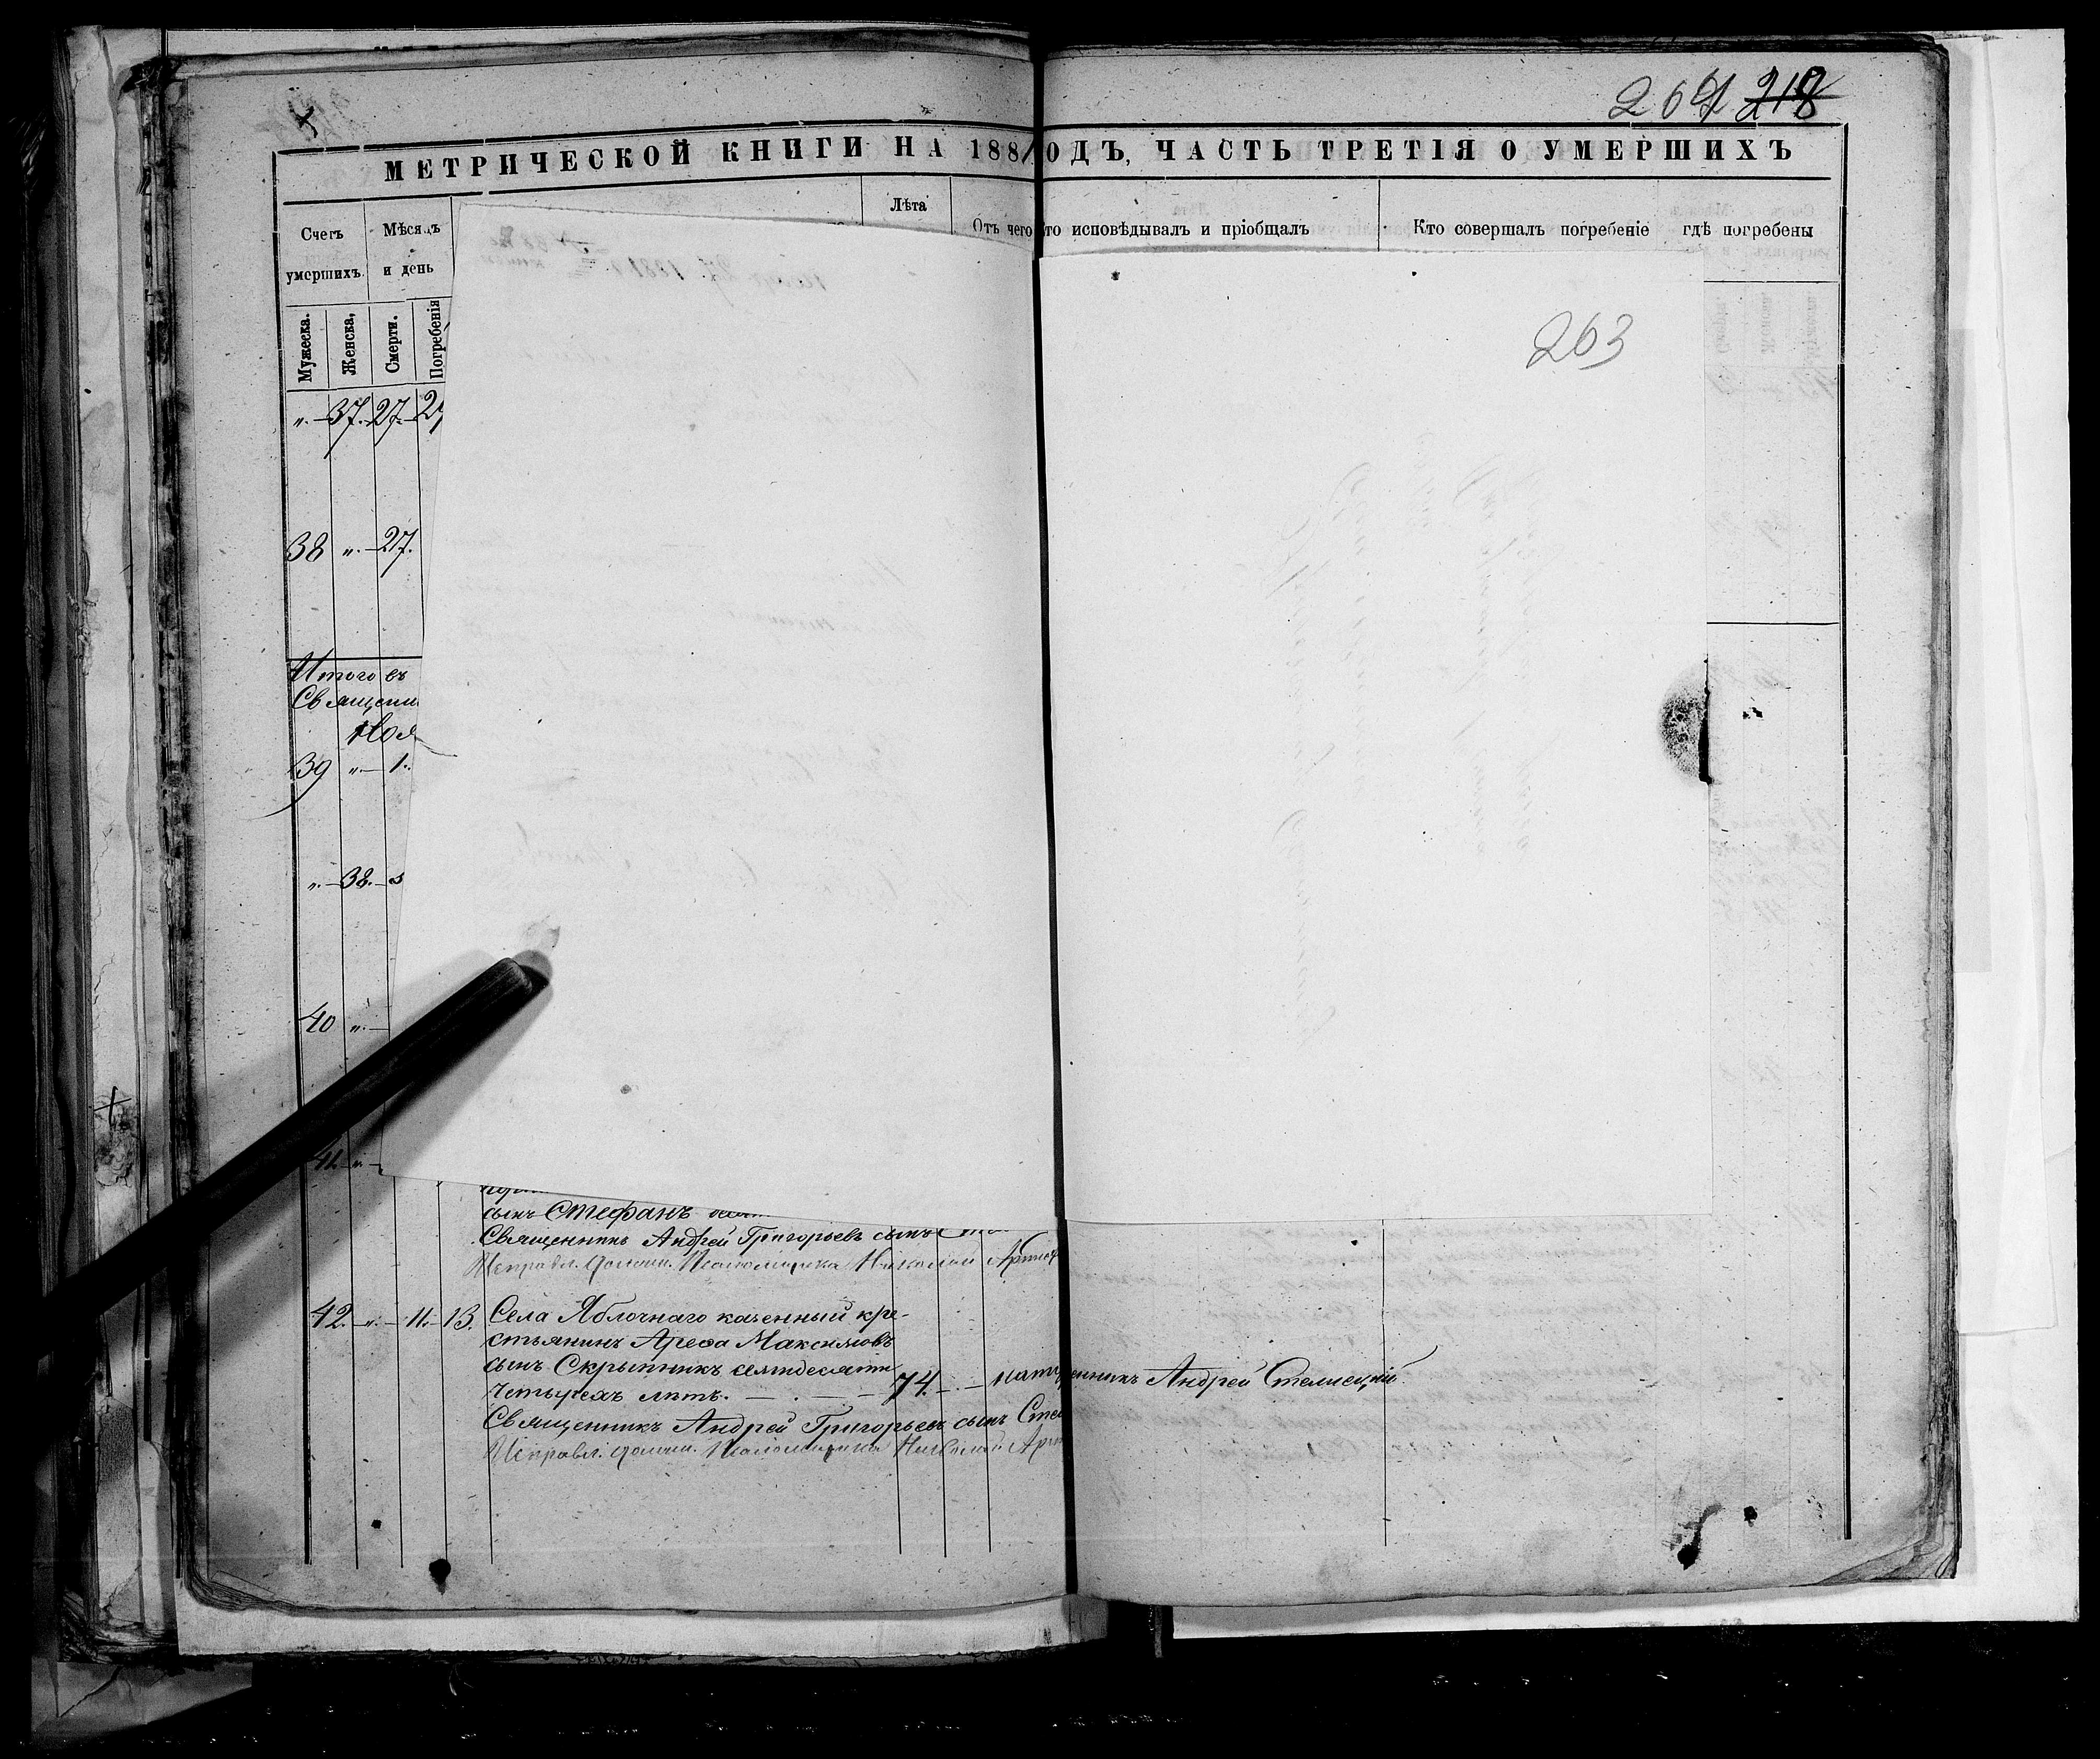 264 218
МЕТРИЧЕСКОЙ КНИГИ НА 188 ОДЪ, ЧАСТЬ ТРЕТІЯ О УМЕРШИХЪ
Счетъ умершихъ.
Мѣсяцъ и день
Лѣта
Отъ чего
то исповѣдывалъ и пріобщалъ
Кто совершалъ погребеніе гдѣ погребены
Мужеска.
Женска,
Смерти.
Погребенія
263
„ 37. 27. 27
38 „ 27.
Итого въ
Священн
Ноя
39 „ 1.
„ 38.
40 „
41. „
сынъ Стефанъ
Священникъ Андрей Григорьевъ сынъ
Исправл. должн. Псаломщика Николай
42. „ 11. 13. Села Яблочнаго казенный кре-
стьянинъ Арефа Максимовъ
сынъ Скрыпникъ семидесяти
четырехъ лѣтъ. 74. нату енникъ Андрей Стелиецкій.
Священникъ Андрей Григорьевъ сынъ Сте
Исправл. должн. Псаломщика Николай